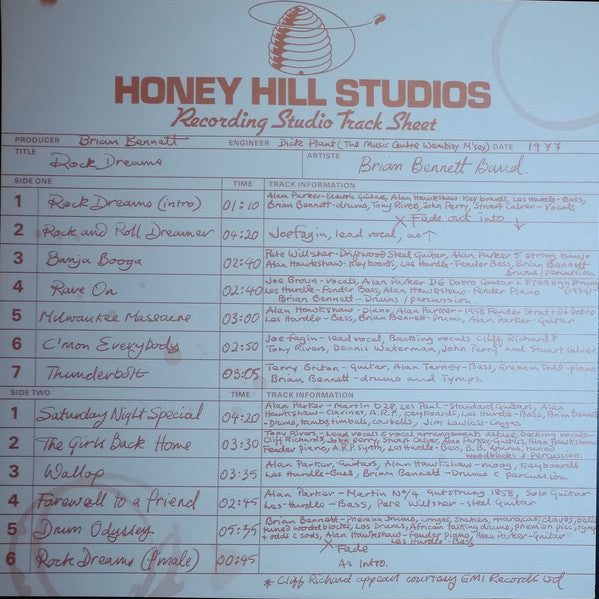 HONEY HILL STUDIOS
Recording Studio Track Sheet
PRODUCER Brian Bennett ENGINEER Dick Plant (The Music Centre Wembley M'sex) DATE 1977
TITLE Rock Dreams ARTISTE Brian Bennett Band.
SIDE ONE TIME TRACK INFORMATION
1 Rock Dreams (intro) 01:10 Alan Parker-Electric Guitars, Alan Hawkshaw-Keyboards, Les Hurdle-Bass,
Brian Bennett-drums, Tony Rivers, John Perry, Stuart Calver - Vocals
X Fade out into ↓
2 Rock and Roll Dreamer 04:20 Joe fagin, lead vocal, as ↑
3 Banja Booga 02:40 Pete Willsher-Driftwood Steel Guitar, Alan Parker 5 string banjo
Alan Hawkshaw-Keyboards, Les Hurdle-Fender Bass, Brian Bennett
drums/percussion.
4 Rave On 02:40 Joe Brown-vocals, Alan Parker D6 Dobro Guitar + High String
Les Hurdle-Fender Bass, Alan Hawkshaw-Fender Piano
Brian Bennett-Drums/percussion.
5 Milwaukee Masacre 03:00 Alan Hawkshaw-piano, Alan Parker-1958 Fender Strat + D6 Dobro
Les Hurdle-Bass, Brian Bennett-Drums, Alan Parker-Guitar
6 C'mon Everybody 02:50 Joe fagin-lead vocal, Backing vocals Cliff Richard*
Tony Rivers, Dennis Waterman, John Perry and Stuart Calver
7 Thunderbolt 03:05 Terry Briton-Guitar, Alan Tarney-Bass, Graham Todd-piano
Brian Bennett-drums and Tymps.
SIDE TWO TIME TRACK INFORMATION
1 Saturday Night Special 04:20 Alan Parker-Martin D28 Les Paul-Standard Guitars, Alan
Hawkshaw-Clavinet, A.R.P., Keyboards, Les Hurdle-Bass, Brian Bennett
-Drums, tamb, timbals, cowbells, Jim Lawless-Congas
2 The Girls Back Home 03:30 Tony Rivers-Lead vocal & vocal arrangements deluxe, backing vocals-
Cliff Richard*, John Perry, Stuart Calver, Alan Parker Guitars, Alan Hawkshaw
Fender piano, A.R.P. Synth, Les Hurdle-Bass, B.B. Drums, tuned
woodblocks & percussion.
3 Wallop 03:35 Alan Parker, Guitars, Alan Hawkshaw-moog, Keyboards
Les Hurdle-Bass, Brian Bennett-Drums & percussion.
4 Farewell to a Friend 02:45 Alan Parker-Martin No/4 Gutstrung 1858, Solo Guitar
Les Hurdle-Bass, Pete Willsher-steel Guitar
5 Drum Odyssey 05:35 Brian Bennett-Premier Drums, congas, shakers, maracas, claves, bells,
tuned wood blocks, Log drums, African talking drums,
+ odds & sods, Alan Hawkshaw-Fender piano, Alan Parker-Guitar
Les Hurdle-Bass
X Fade
6 Rock Dreams (finale) 00:45 As Intro.
* Cliff Richard appears courtesy EMI Records Ltd